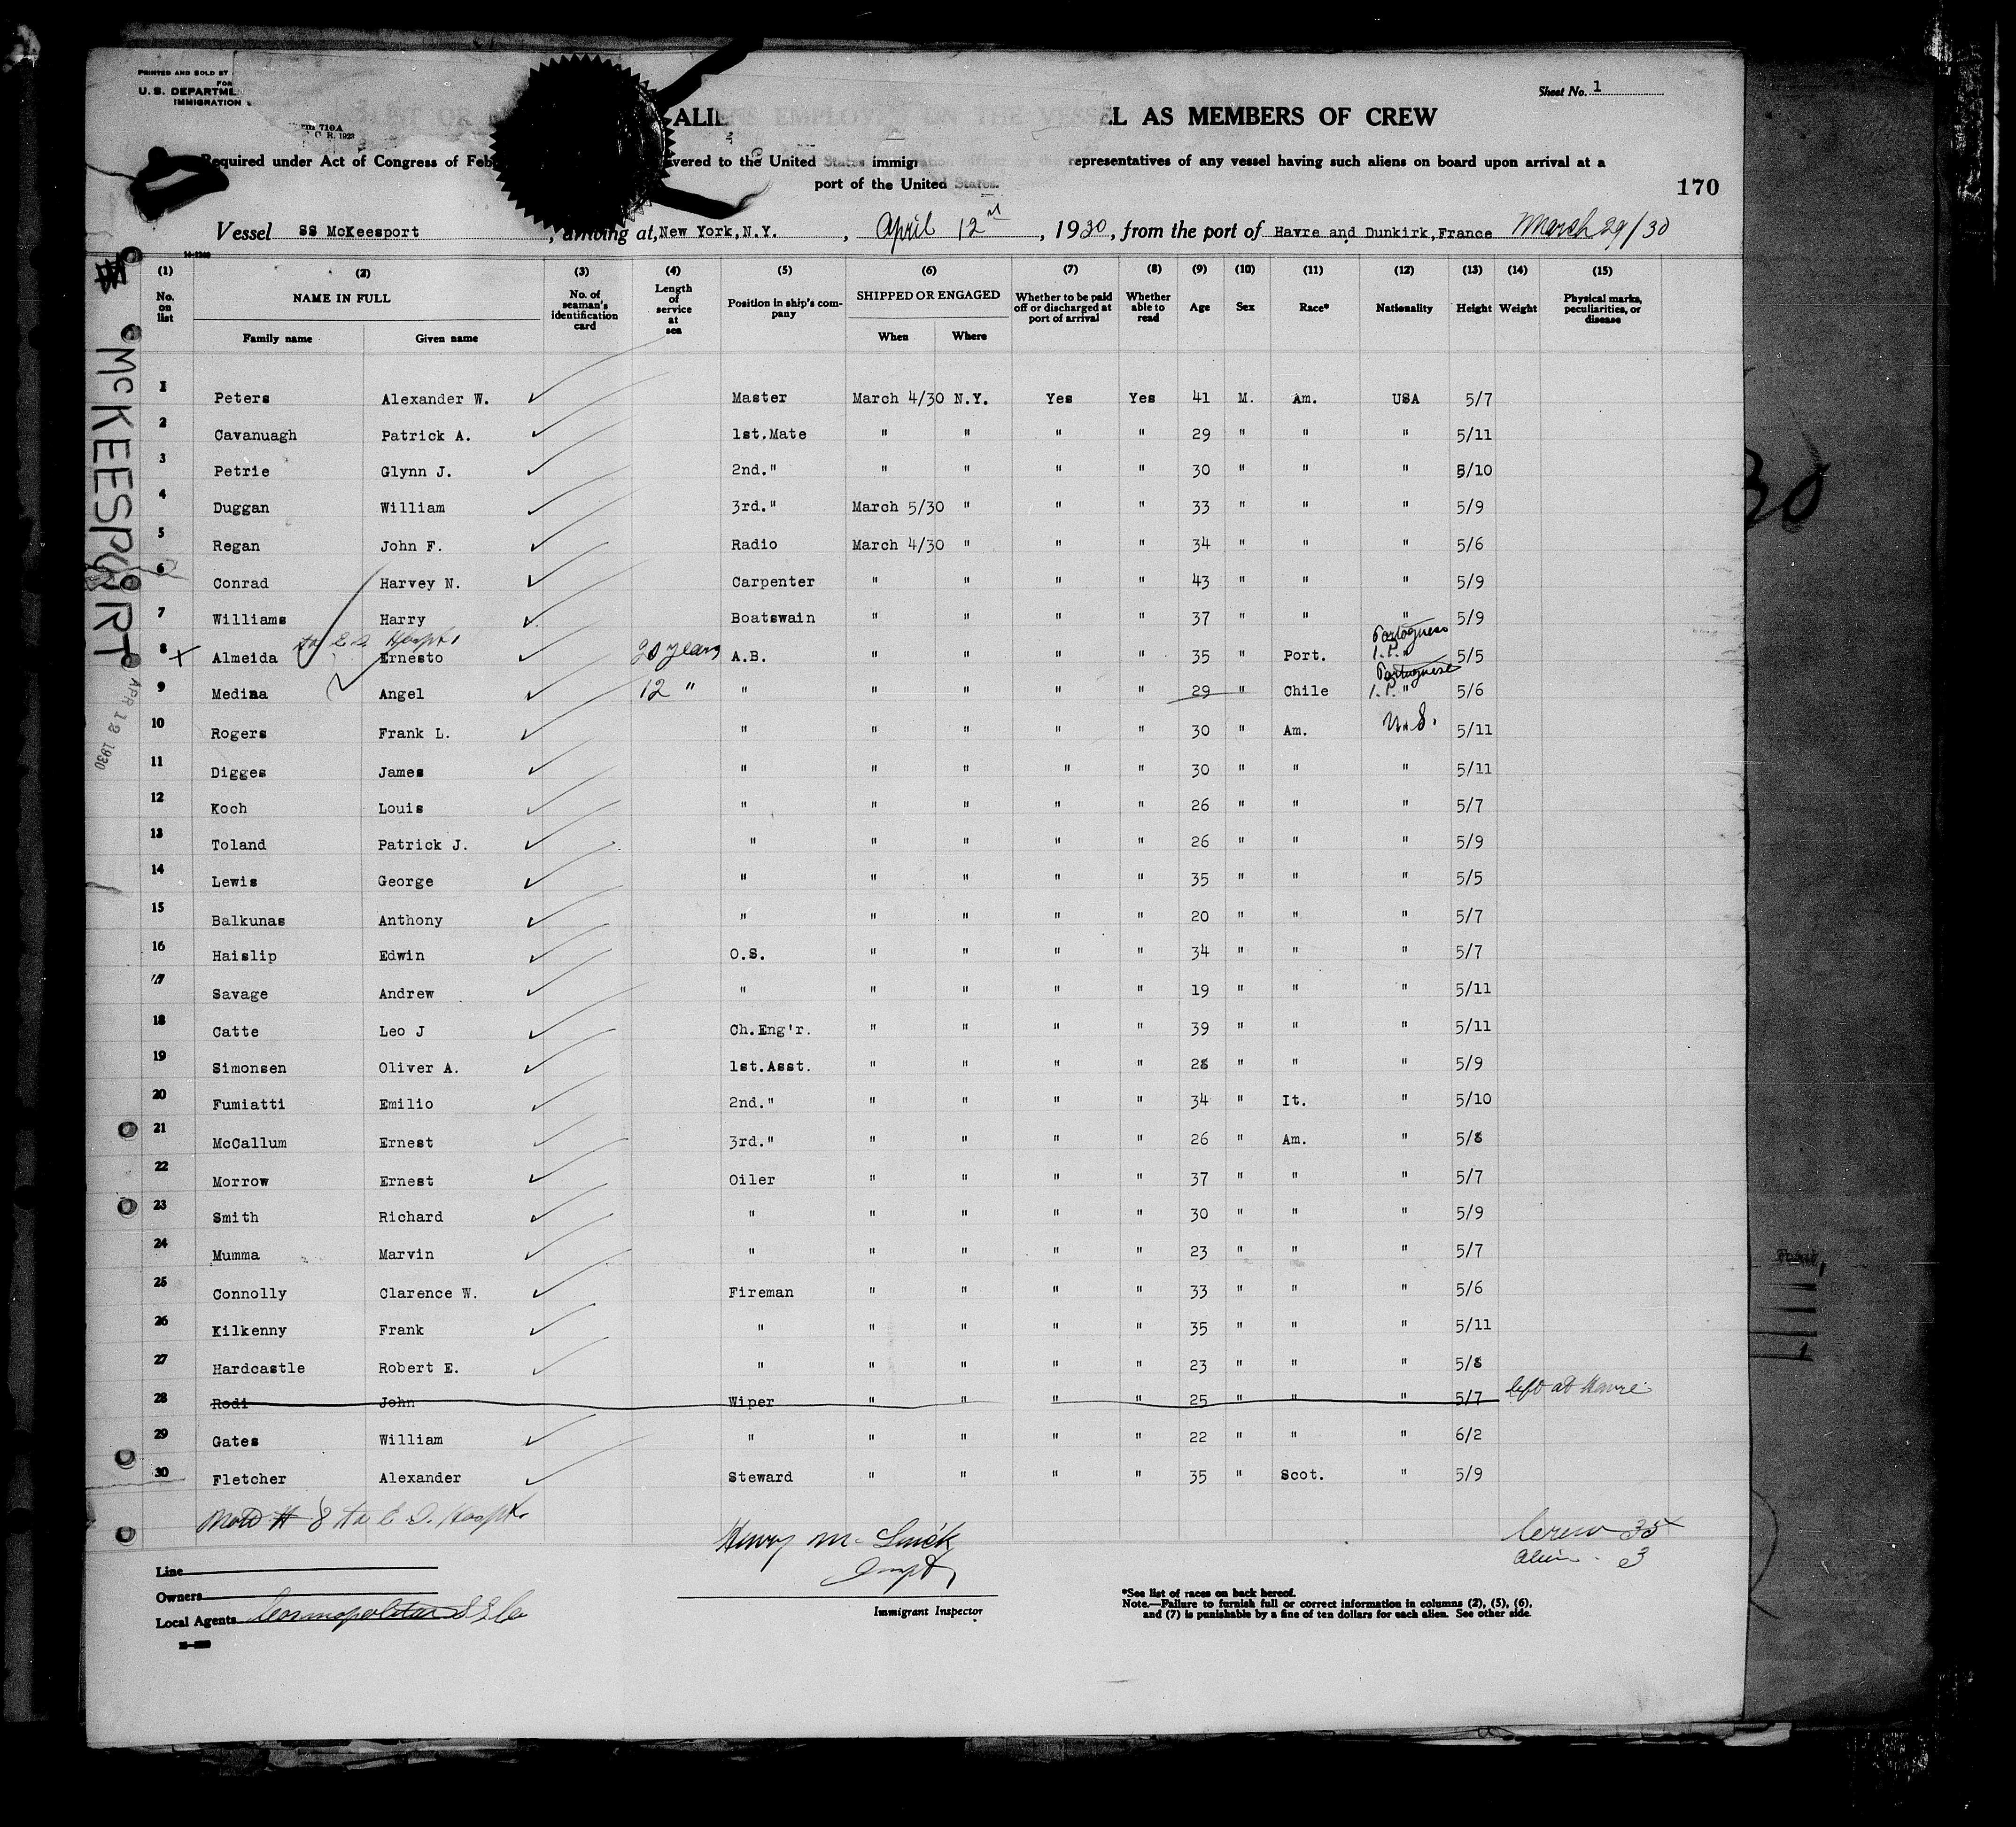 PRINTED AND SOLD BY
FOR
U. S. DEPARTMEN
IMMIGRATION
710A
1923
Sheet No. 1
ALIENS EMPLOYED ON THE VESSEL AS MEMBERS OF CREW
Required under Act of Congress of Feb avered to the United States immigration officer by the representatives of any vessel having such aliens on board upon arrival at a
port of the United States.
170
Vessel SS McKeesport, arriving at, New York, N.Y., April 12, 1930, from the port of Havre and Dunkirk, France March 29/30
(1) (2) (3) (4) (5) (6) (7) (8) (9) (10) (11) (12) (13) (14) (15)
No. on list NAME IN FULL No. of seaman's identification card Length of service at sea Position in ship's company SHIPPED OR ENGAGED Whether to be paid off or discharged at port of arrival Whether able to read Age Sex Race* Nationality Height Weight Physical marks, peculiarities, or disease
Family name Given name When Where
1 Peters Alexander W. Master March 4/30 N.Y. Yes Yes 41 M. Am. USA 5/7
2 Cavanuagh Patrick A. 1st.Mate " " " " 29 " " " 5/11
3 Petrie Glynn J. 2nd." " " " " 30 " " " 5/10
4 Duggan William 3rd." March 5/30 " " " 33 " " " 5/9
5 Regan John F. Radio March 4/30 " " " 34 " " " 5/6
6 Conrad Harvey N. Carpenter " " " " 43 " " " 5/9
7 Williams Harry Boatswain " " " " 37 " " " 5/9
to E.I. Hospt. Portuguese
8 x Almeida Ernesto 20 years A.B. " " " " 35 " Port. 1.P. " 5/5
Portuguese
9 Medina Angel 12 " " " " " " 29 " Chile 1.P. " 5/6
10 Rogers Frank L. " " " " " 30 " Am. U.S. 5/11
11 Digges James " " " " " 30 " " " 5/11
12 Koch Louis " " " " " 26 " " " 5/7
13 Toland Patrick J. " " " " " 26 " " " 5/9
14 Lewis George " " " " " 35 " " " 5/5
15 Balkunas Anthony " " " " " 20 " " " 5/7
16 Haislip Edwin O.S. " " " " 34 " " " 5/7
17 Savage Andrew " " " " " 19 " " " 5/11
18 Catte Leo J Ch.Eng'r. " " " " 39 " " " 5/11
19 Simonsen Oliver A. 1st.Asst. " " " " 28 " " " 5/9
20 Fumiatti Emilio 2nd." " " " " 34 " It. " 5/10
21 McCallum Ernest 3rd." " " " " 26 " Am. " 5/8
22 Morrow Ernest Oiler " " " " 37 " " " 5/7
23 Smith Richard " " " " " 30 " " " 5/9
24 Mumma Marvin " " " " " 23 " " " 5/7
25 Connolly Clarence W. Fireman " " " " 33 " " " 5/6
26 Kilkenny Frank " " " " " 35 " " " 5/11
27 Hardcastle Robert E. " " " " " 23 " " " 5/8
28 Rodi John Wiper " " " " 25 " " " 5/7 left at Havre
29 Gates William " " " " " 22 " " " 6/2
30 Fletcher Alexander Steward " " " " 35 " Scot. " 5/9
# 8 to E.I. Hospt.
Crew 35
Alien 3
Henry
Inspt.
Line
Owners
Local Agents Cosmopolitan SS Co
Immigrant Inspector
*See list of races on back hereof.
Note.—Failure to furnish full or correct information in columns (2), (5), (6),
and (7) is punishable by a fine of ten dollars for each alien. See other side.
McKEESPORT
APR 12 1930
30